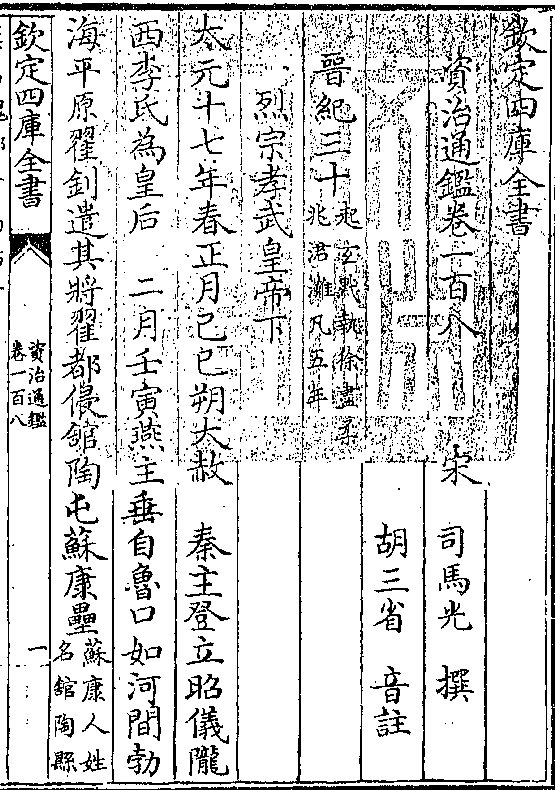 欽定四庫全書
資治通鑑卷一百八
宋 司馬光 撰
胡三省 音註
晉紀三十
起玄黓執徐盡柔
兆涒灘凡五年
烈宗孝武皇帝下
太元十七年春正月己巳朔大赦 秦主登立昭儀隴
西李氏為皇后 二月壬寅燕主垂自魯口如河間勃
海平原翟釗遣其將翟都侵館陶屯蘇康壘
蘇康人姓
名館陶縣
欽定四庫全書
資治通鑑
卷一百八
一